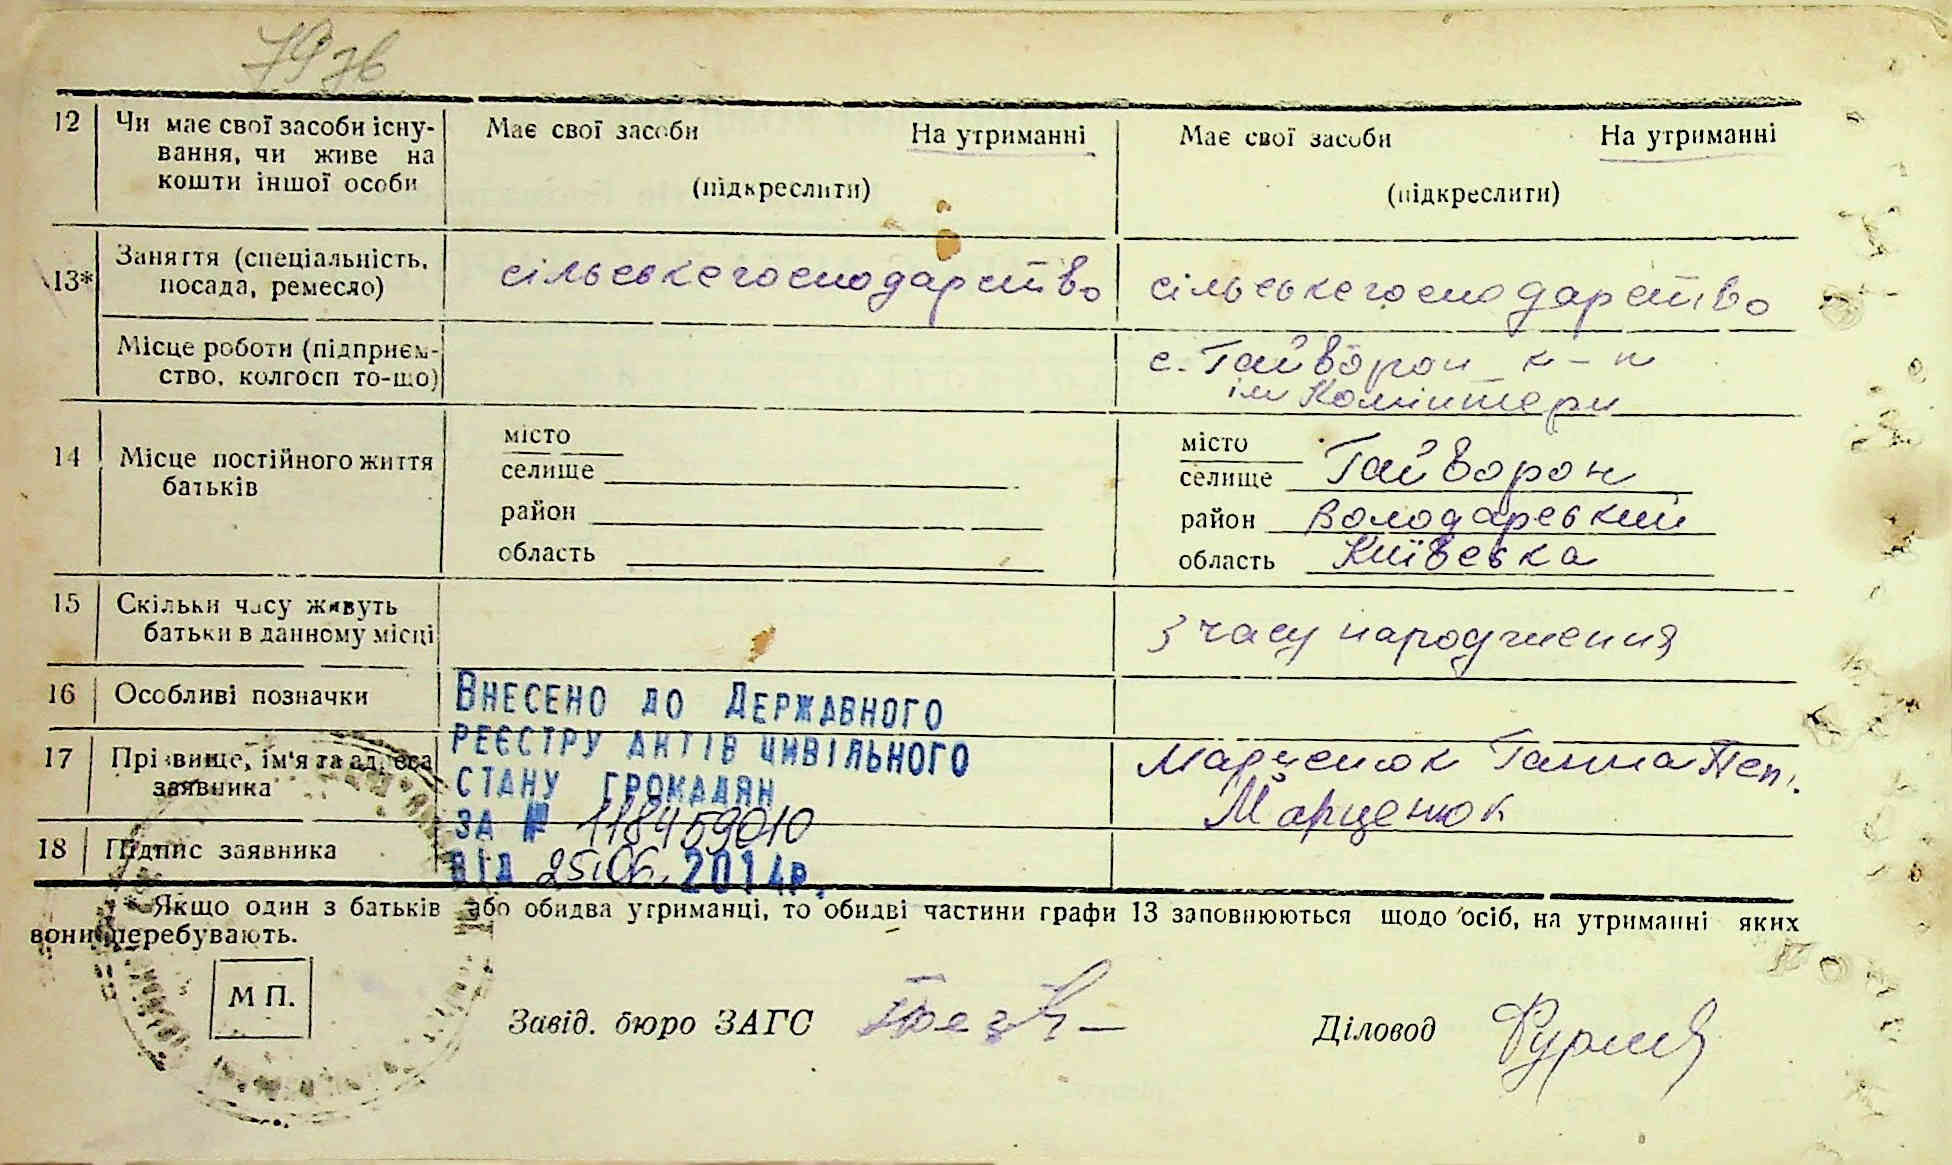 79 зв
12 Чи має свої засоби існу- Має свої засоби На утриманні Має свої засоби На утриманні
вання, чи живе на
кошти іншої особи (підкреслити) (підкреслити)
13* Заняття (спеціальність, сільське господарство сільське господарство
посада, ремесло)
Місце роботи (підприєм- с. Гайворон к-п
ство, колгосп то-що) ім Комінтерн
14 Місце постійного життя місто місто
батьків селище селище Гайворон
район район Володарський
область область Київська
15 Скільки часу живуть з часу народження
батьки в данному місці
16 Особливі позначки Внесено до Державного
реєстру актів цивільного
17 Прізвище, ім'я та адреса Марценюк Ганна Пет.
заявника стану громадян
за № 118459010 Марценюк
18 Підпис заявника
від 25.06. 2014р.
* Якщо один з батьків або обидва утриманці, то обидві частини графи 13 заповнюються щодо осіб, на утриманні яких
вони перебувають.
М П.
Завід. бюро ЗАГС Діловод